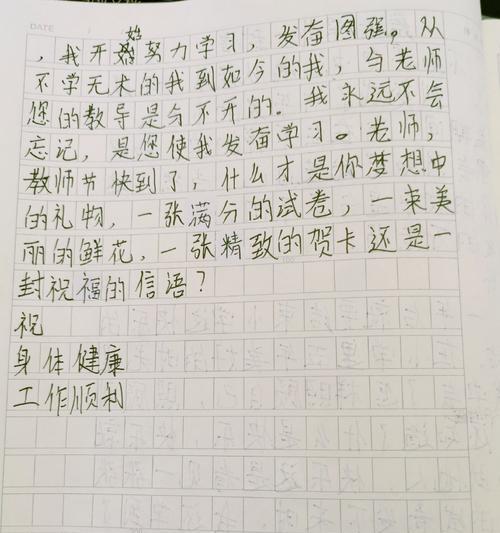 DATE
始
，我开始努力学习，发奋图强。从
不学无术的我到如今的我，与老师
您的教导是分不开的。我永远不会
忘记，是您使我发奋学习。老师，
教师节快到了，什么才是你梦想中
的礼物，一张满分的试卷，一束美
丽的鲜花，一张精致的贺卡还是一
封祝福的信语？
祝
身体健康
工作顺利